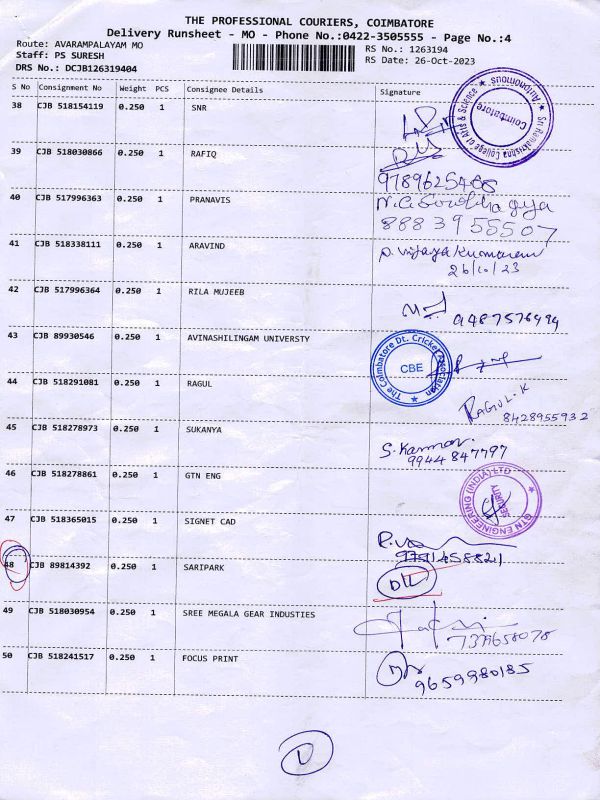 THE PROFESSIONAL COURIERS, COIMBATORE
Delivery Runsheet - MO - Phone No.:0422-3505555 - Page No.:4
Route: AVARAMPALAYAM MO
Staff: PS SURESH
DRS No.: DCJB126319404
RS No.: 1263194
RS Date: 26-Oct-2023
S No Consignment No Weight PCS Consignee Details Signature
38 CJB 518154119 0.250 1 SNR
Sri Ramakrishna College of Arts & Science ★ Autonomous ★
Coimbatore
39 CJB 518030866 0.250 1 RAFIQ
40 CJB 517996363 0.250 1 PRANAVIS
88839 55507
41 CJB 518338111 0.250 1 ARAVIND
P. Vijaya Kumaran
26/10/23
42 CJB 517996364 0.250 1 RILA MUJEEB
9487576494
43 CJB 89930546 0.250 1 AVINASHILINGAM UNIVERSTY
The Coimbatore Dt. Cricket Association ★
CBE
44 CJB 518291081 0.250 1 RAGUL
RAGUL.K
8428955932
45 CJB 518278973 0.250 1 SUKANYA
S. Kannan
9944 847797
46 CJB 518278861 0.250 1 GTN ENG
GTN ENGINEERING (INDIA) LTD ★
SECURITY
47 CJB 518365015 0.250 1 SIGNET CAD
48 CJB 89814392 0.250 1 SARIPARK
DIL
49 CJB 518030954 0.250 1 SREE MEGALA GEAR INDUSTIES
50 CJB 518241517 0.250 1 FOCUS PRINT
9659980185